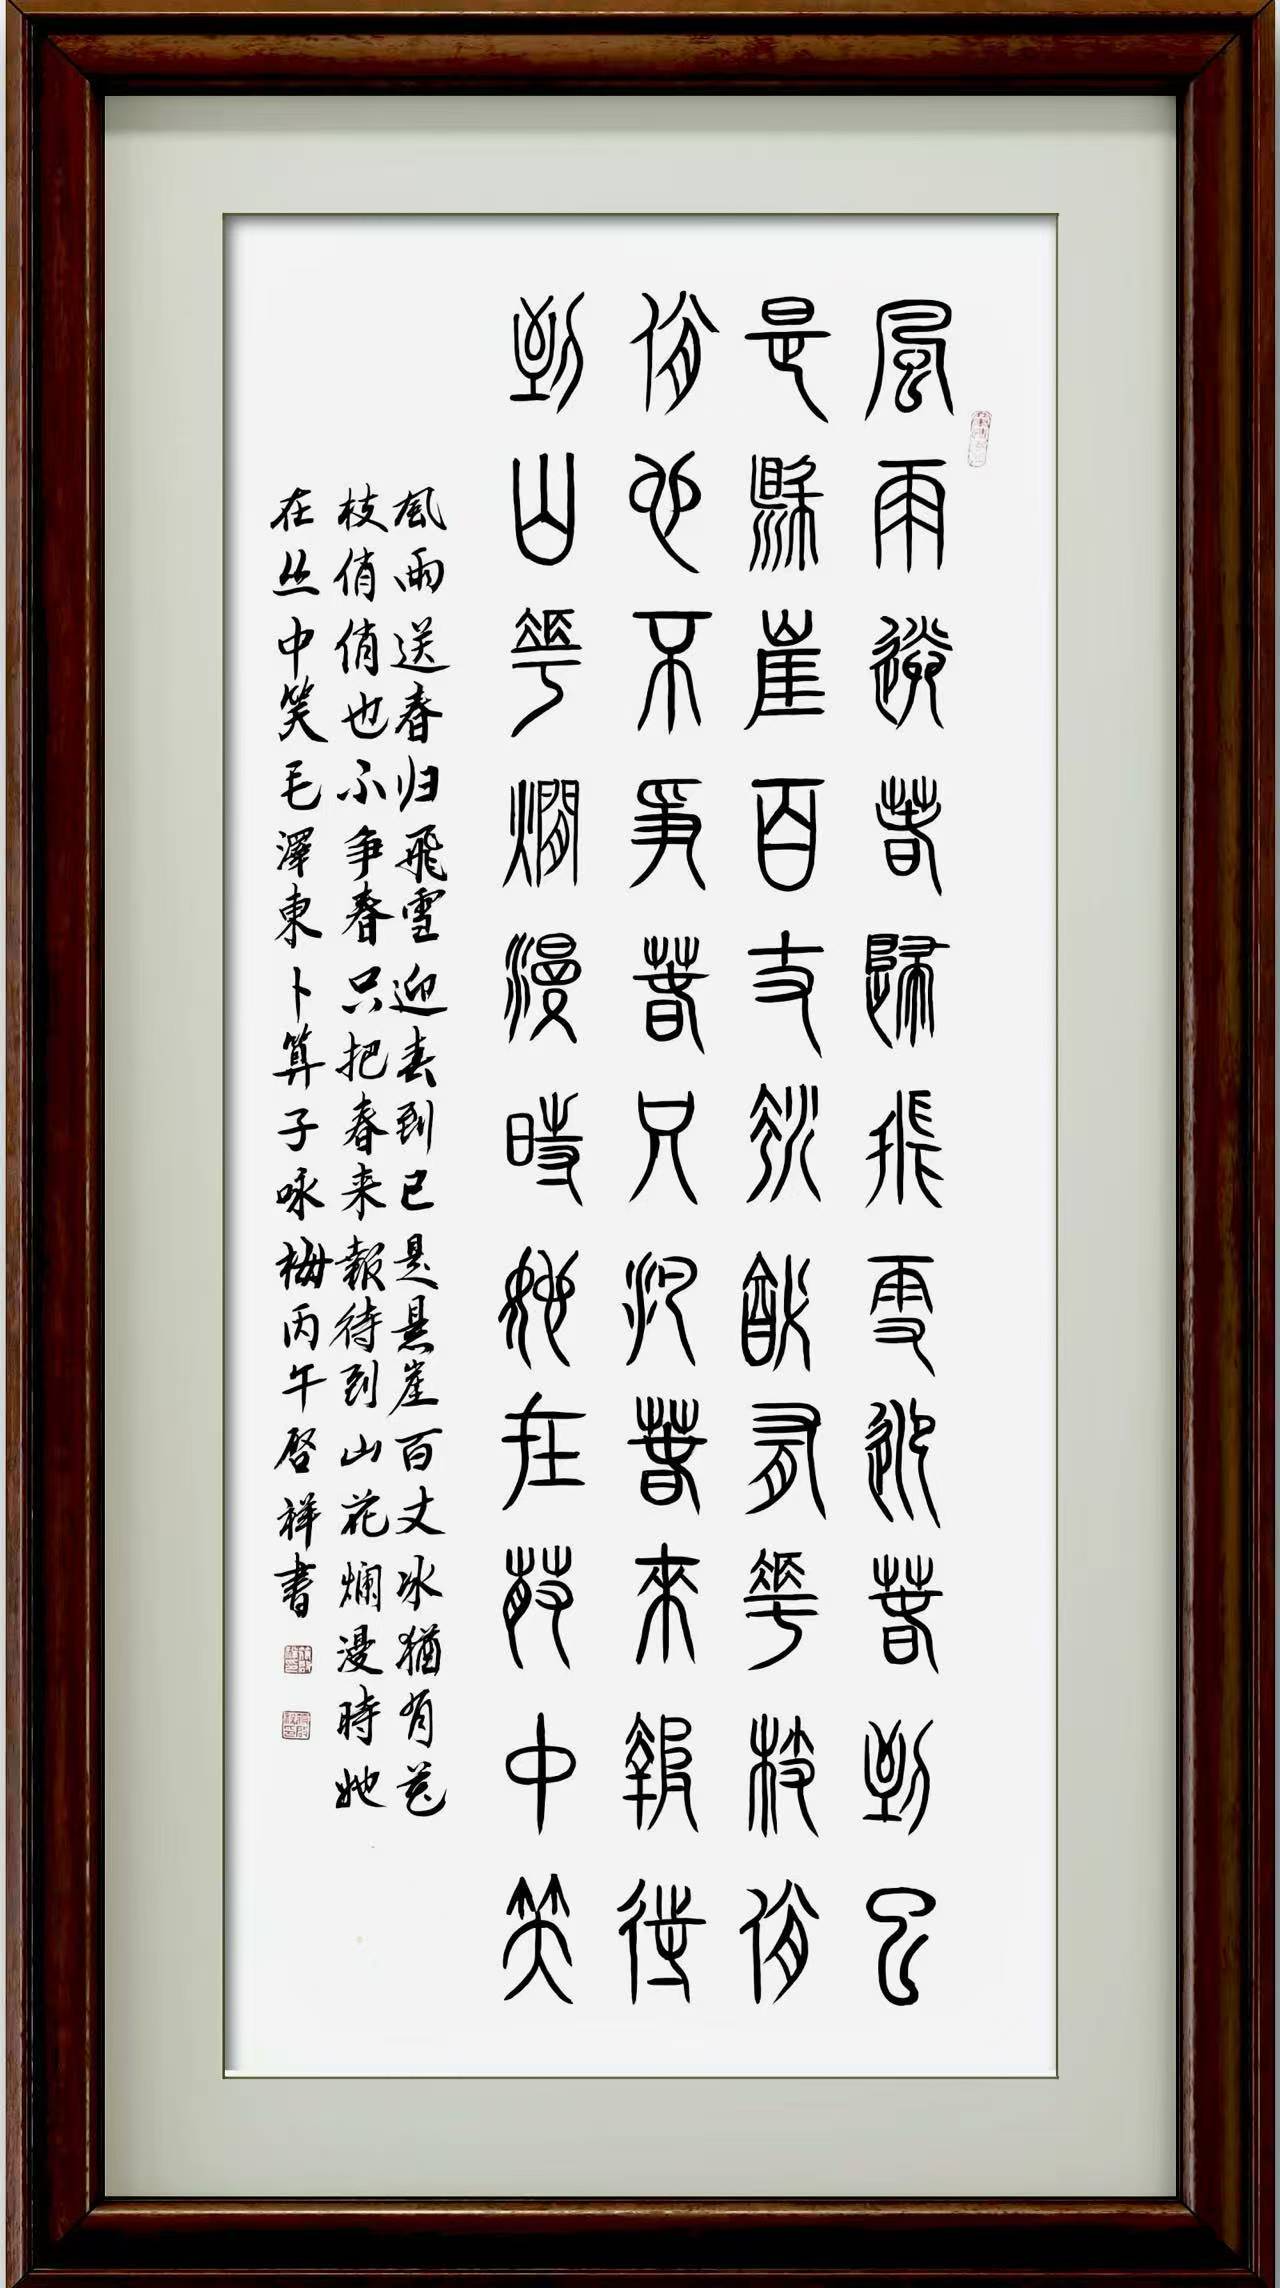 風雨送春歸飛雪迎春到已
是縣崖百丈冰猶有花枝俏
俏也不爭春只把春來報待
到山花爛漫時她在叢中笑
風雨送春归飛雪迎春到已是悬崖百丈冰猶有花
枝俏俏也不争春只把春来報待到山花爛漫時她
在丛中笑毛澤東卜算子咏梅丙午啓祥書